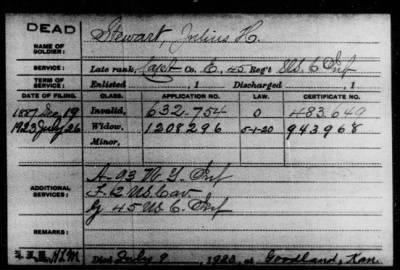 DEAD
NAME OF SOLDIER: Stewart, Julius H.
SERVICE: Late rank, Capt Co. E, 45 Reg't U.S. C Inf
TERM OF SERVICE: Enlisted , 1 Discharged , 1
DATE OF FILING. CLASS. APPLICATION NO. LAW. CERTIFICATE NO.
1887 Dec 19 Invalid, 632.754 0 483.649
1923 July 26 Widow, 1208296 5-1-20 943968
Minor,
ADDITIONAL SERVICES:
A-93 N.Y. Inf
F 12 U.S. Cav
G 45 U.S. C. Inf
REMARKS:
Died July 9, 1923, at Goodland, Kan.